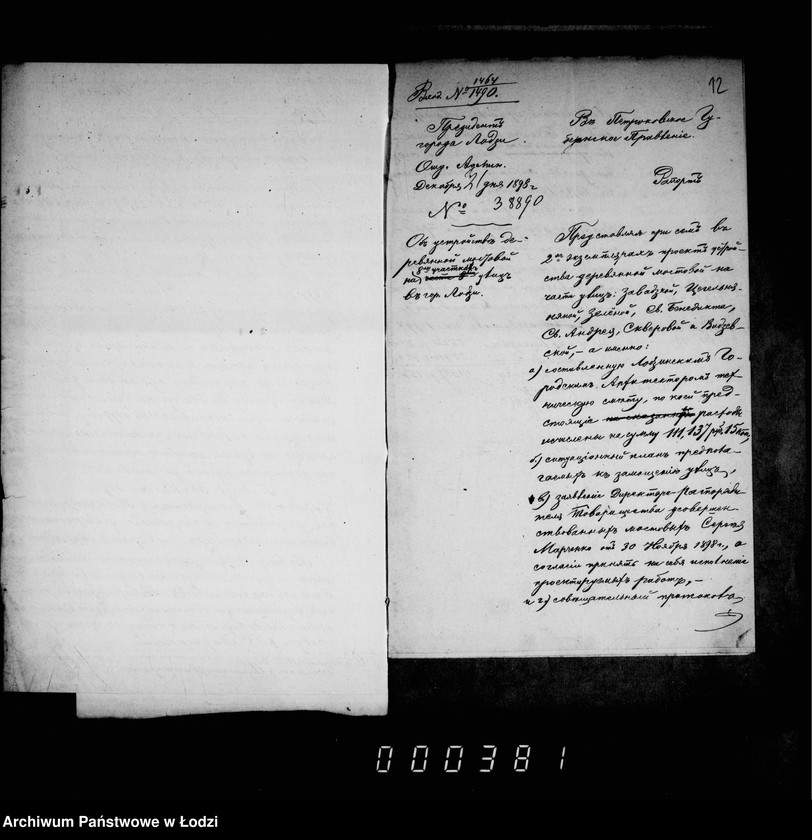 12
1464
Вход. № 1490.
Президентъ
города Лодзи
Отд. Админ.
Декабря 21 дня 1898 г
№ 38890
Объ устройствѣ де-
ревянной мостовой
на 8ми участкахъ улицъ
въ гор. Лодзи.
Въ Петроковское Гу-
бернское Правленіе.
Рапортъ
Представляя при семъ въ
2хъ экземплярахъ проектъ устрой-
ства деревянной мостовой на
части улицъ: Завадзкой, Цегельня-
няной, Зеленой, Св. Бенедикта,
Св. Андрея, Скверовой и Видзев-
ской, – а именно:
а) составленную Лодзинскимъ Го-
родскимъ Архитекторомъ тех-
ническую смѣту, по коей пред-
стоящіе расходы
исчислены на сумму 111,137 руб. 15 коп,
б) ситуаціонный планъ предпола-
гаемыхъ къ замощенію улицъ,
в) заявленіе Директора-Распоряди-
теля Товарищества усовершен-
ствованныхъ мостовыхъ Сергѣя
Марченко отъ 30 Ноября 1898 г., о
согласіи принять на себя исполненіе
проектируемыхъ работъ, –
и г) совѣщательный протоколъ,
000381
Archiwum Państwowe w Łodzi